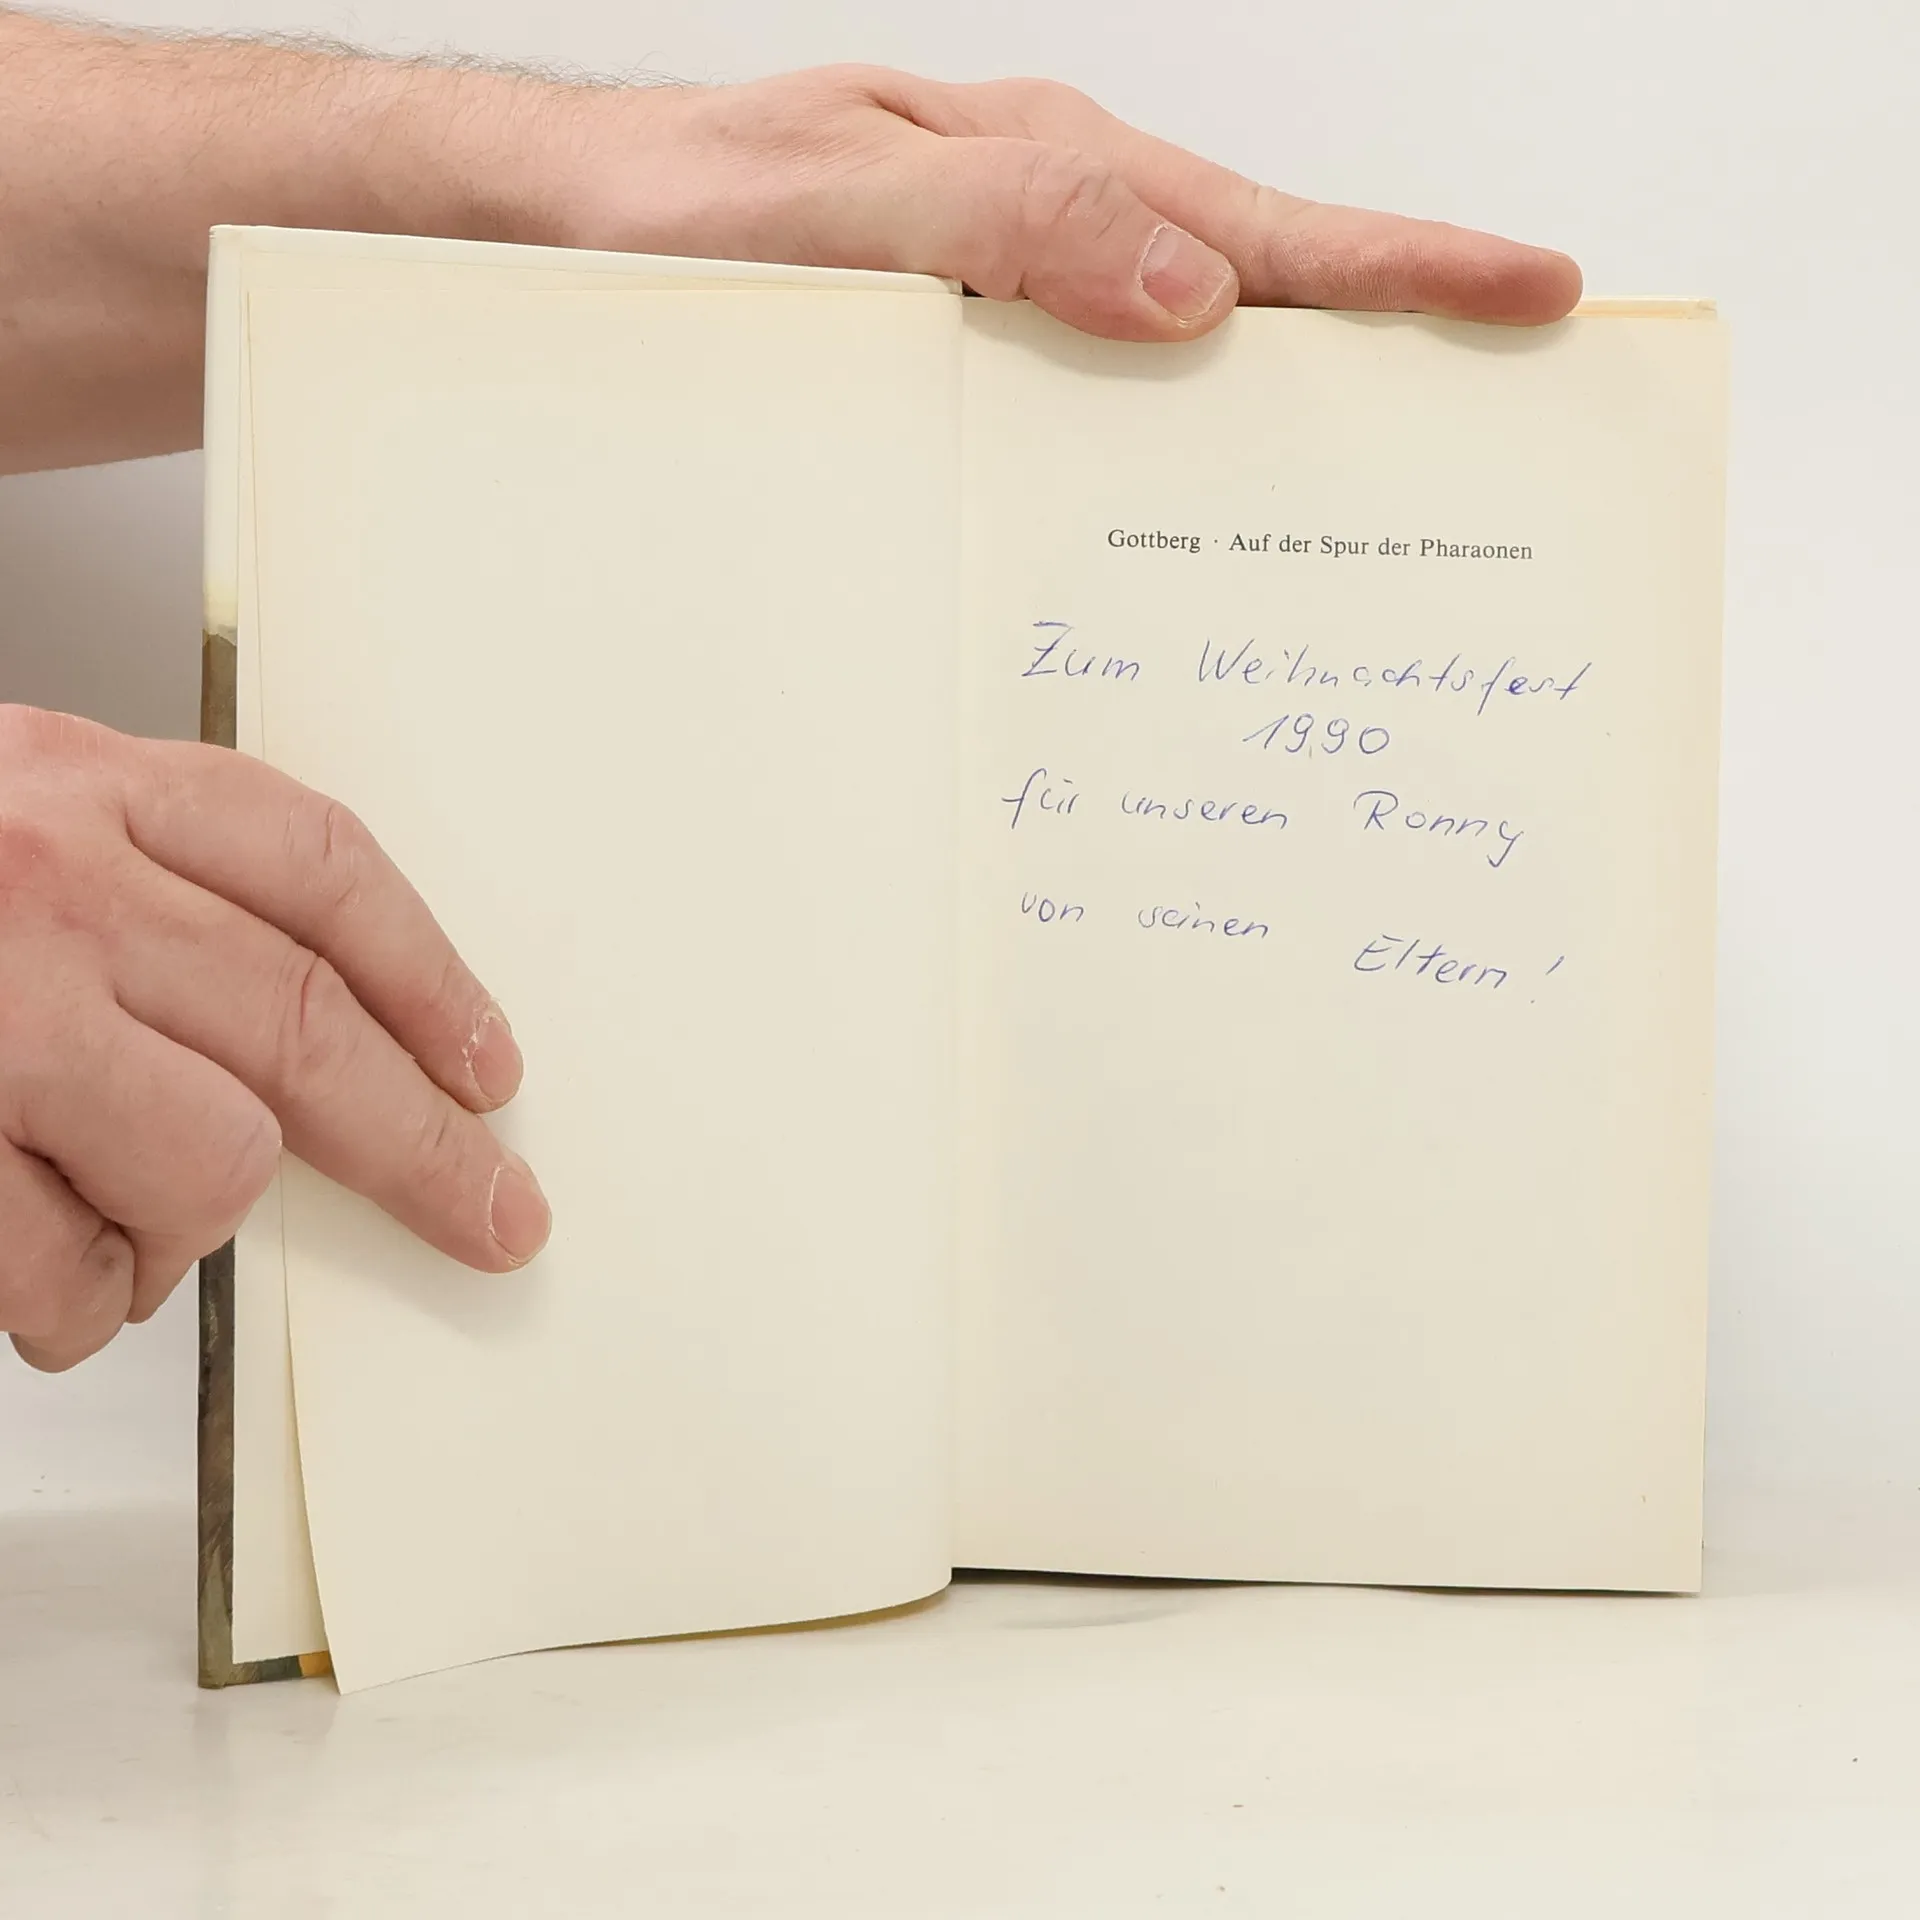 Gottberg · Auf der Spur der Pharaonen
Zum Weihnachtsfest
1990
für unseren Ronny
von seinen Eltern!